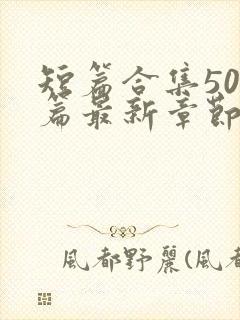 短篇合集50
篇最新章節
風都野麗(風都